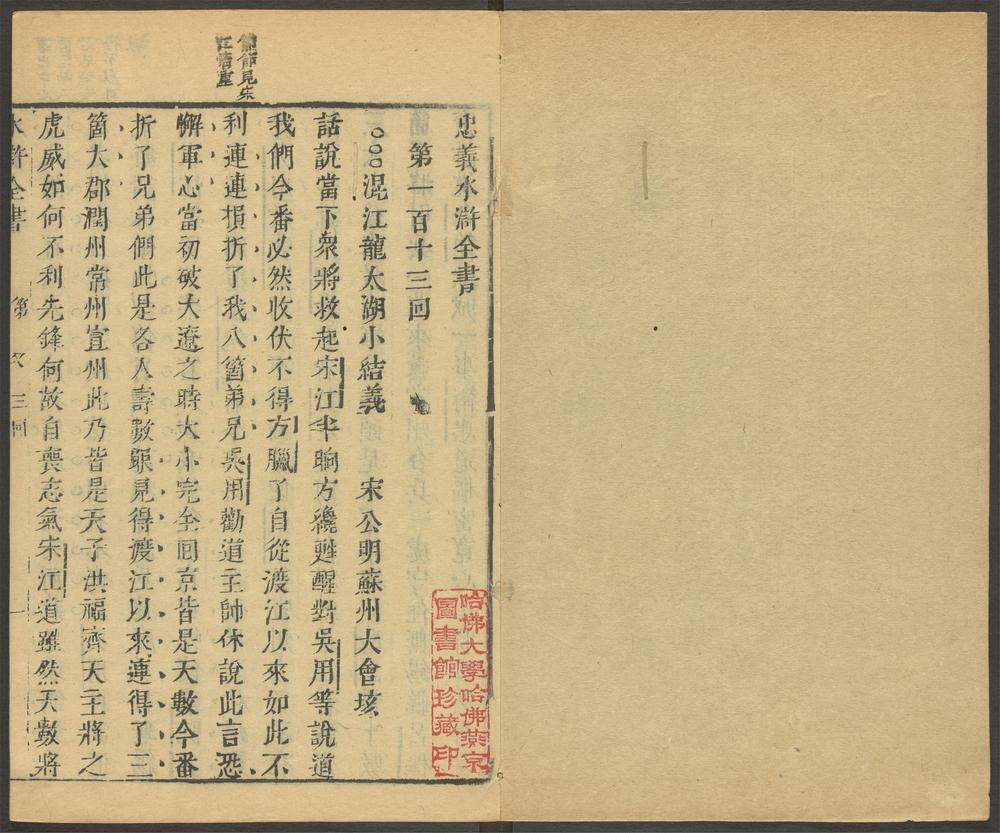 忠義水滸全書
第一百十三回
混江龍太湖小結義 宋公明蘇州大會垓
話說當下衆將救起宋江半晌方纔甦醒對吳用等說道
我們今番必然收伏不得方臘了自從渡江以來如此不
利連連損折了我八箇弟兄吳用勸道主帥休說此言恐
懈軍心當初破大遼之時大小完全回京皆是天數今番
折了兄弟們此是各人壽數眼見得渡江以來連得了三
箇大郡潤州常州宣州此乃皆是天子洪福齊天主將之
虎威如何不利先鋒何故自喪志氣宋江道雖然天數將
水滸全書 第 三回 一
節節見宋
江情重
哈佛大學哈佛燕京
圖書館珍藏印